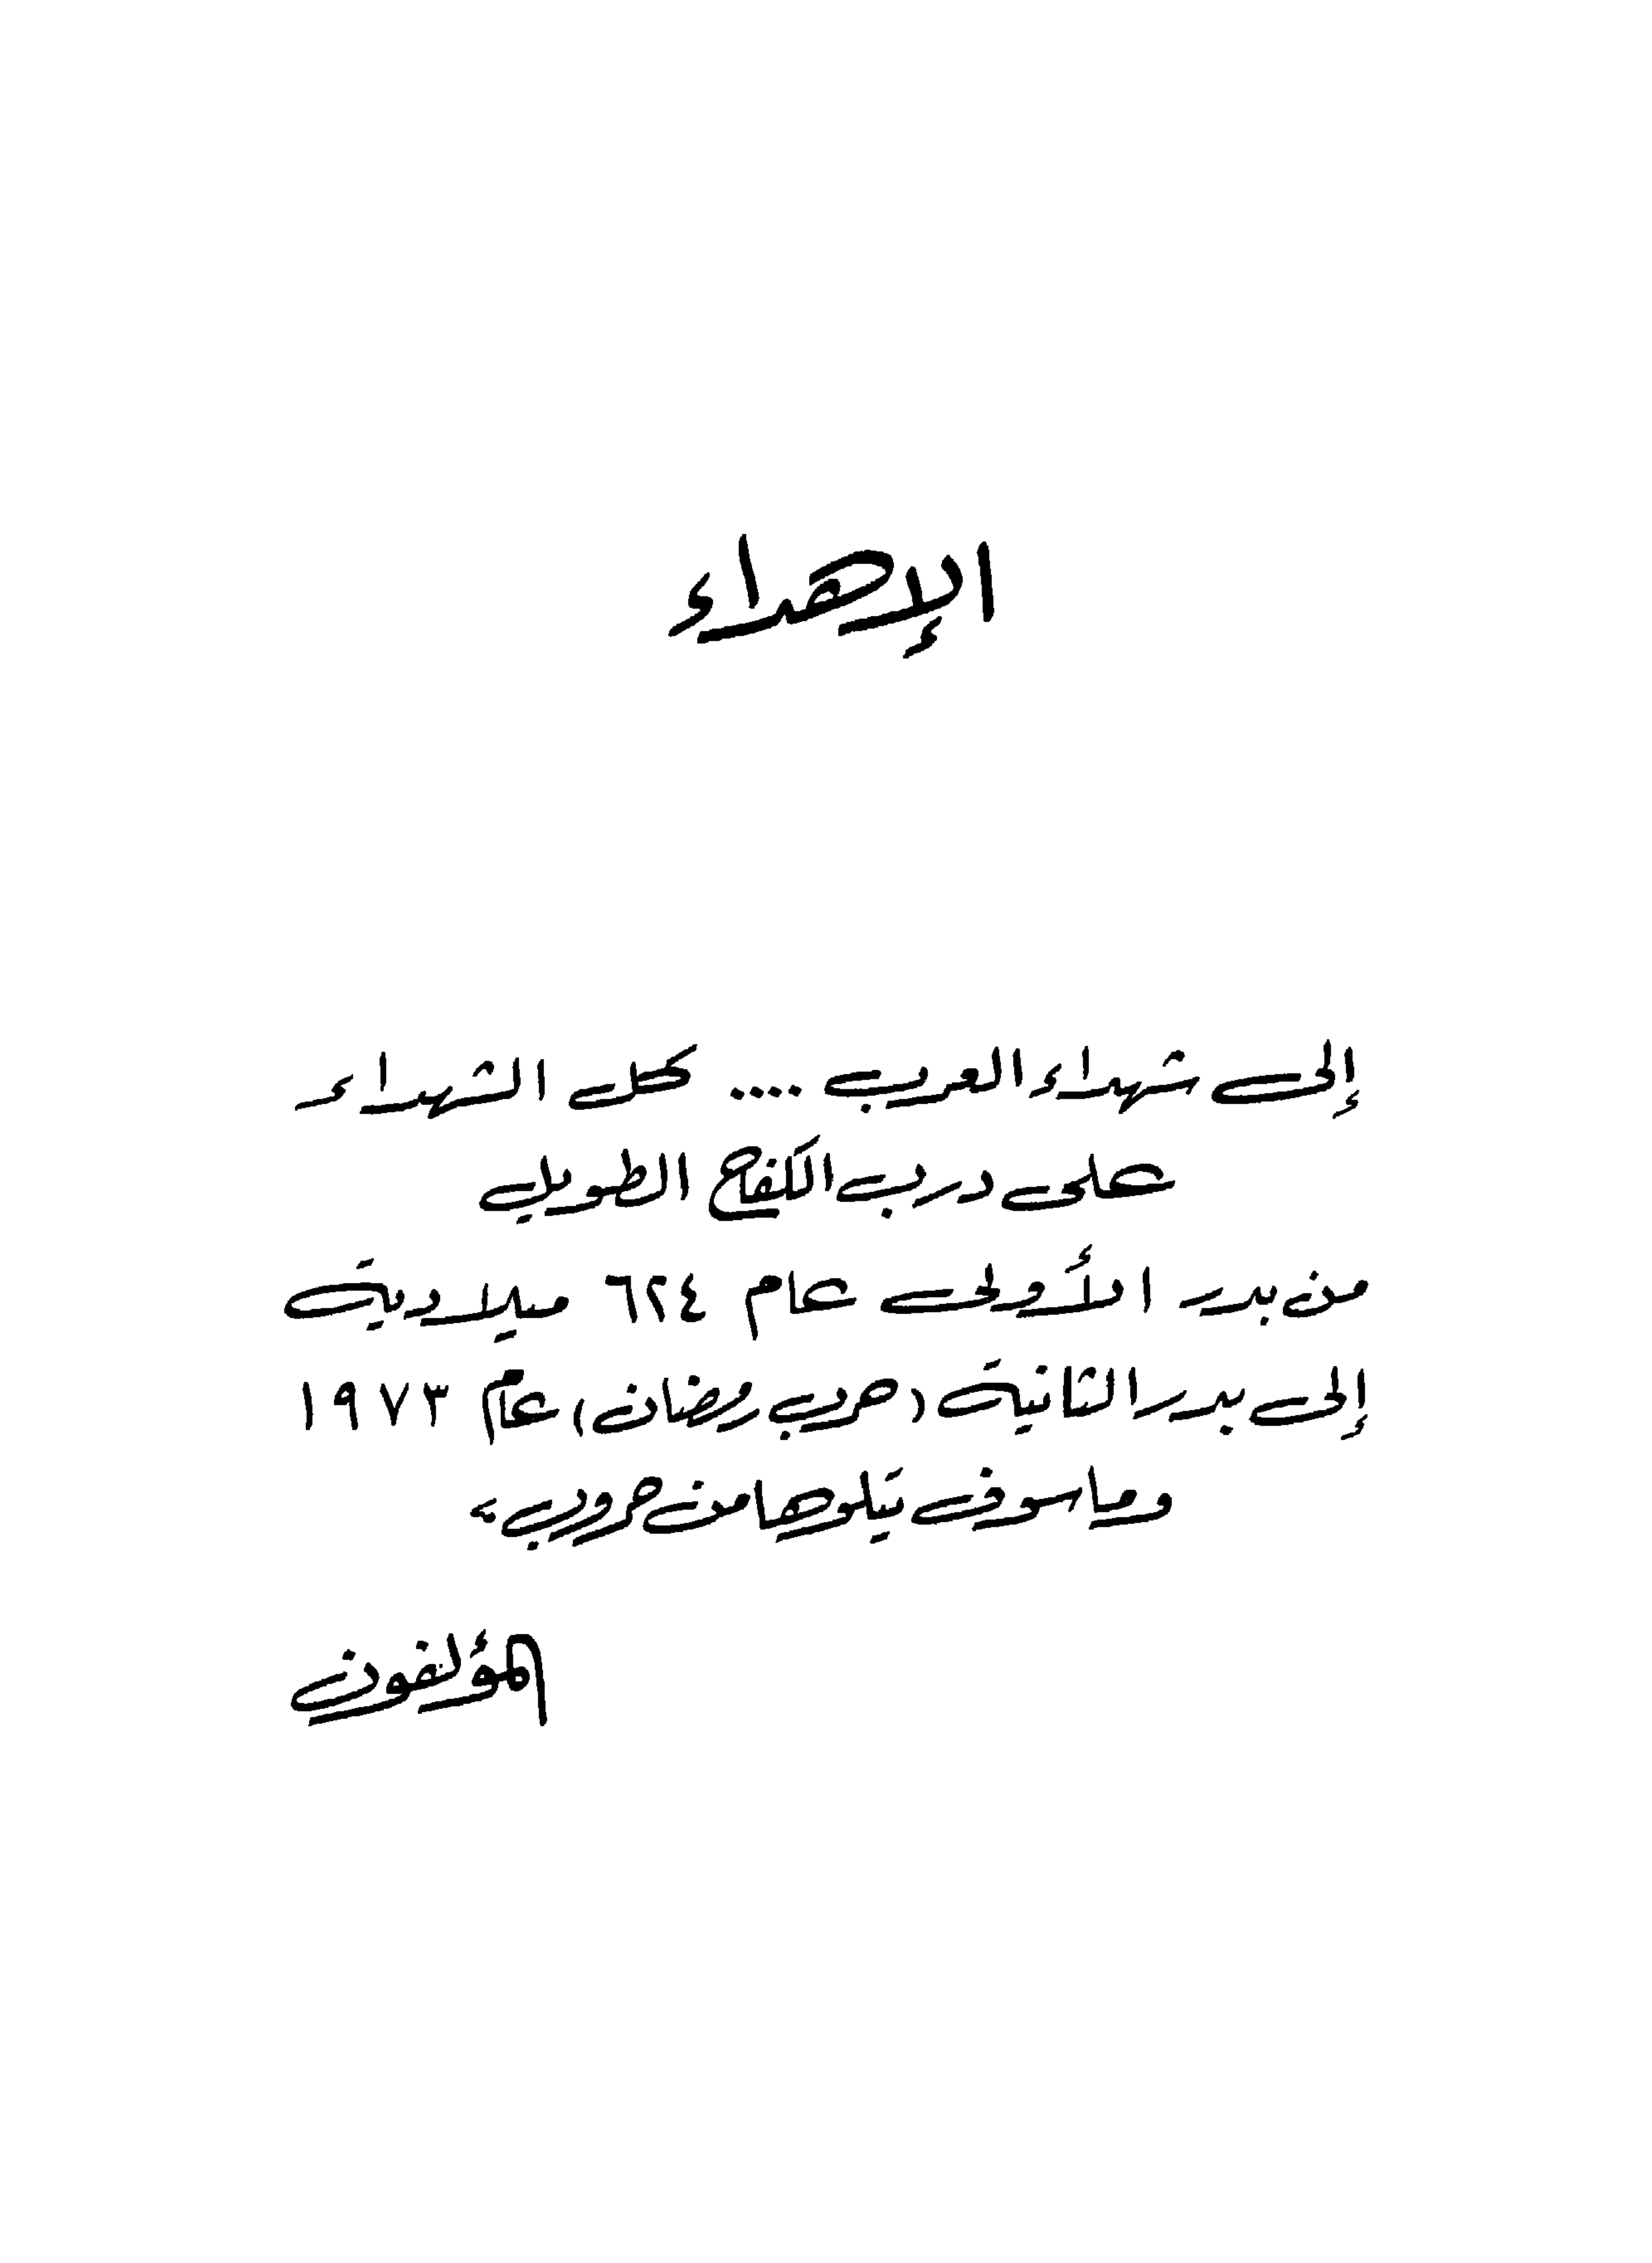 الإهداء
إلى شهداء العرب .... كل الشهداء
على درب الكفاح الطويل
من بدر الأولى عام ٦٢٤ ميلادية
إلى بدر الثانية (حرب رمضان) عام ١٩٧٣
وما سوف يتلوها من حروب،
المؤلفون